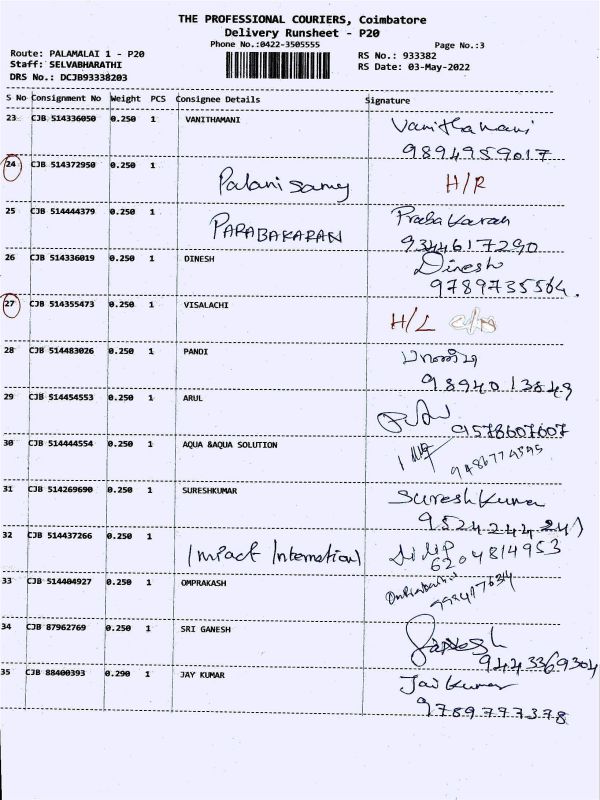 THE PROFESSIONAL COURIERS, Coimbatore
Delivery Runsheet - P20
Phone No.:0422-3505555
Page No.:3
Route: PALAMALAI 1 - P20
RS No.: 933382
Staff: SELVABHARATHI
RS Date: 03-May-2022
DRS No.: DCJB93338203
S No Consignment No Weight PCS Consignee Details Signature
23 CJB 514336050 0.250 1 VANITHAMANI Vanithamani
9894959017
24 CJB 514372950 0.250 1 Palanisamy H/R
25 CJB 514444379 0.250 1 PARABAKARAN Prabakaran
9344617290
26 CJB 514336019 0.250 1 DINESH Dinesh
9789735564.
27 CJB 514355473 0.250 1 VISALACHI H/L
28 CJB 514483026 0.250 1 PANDI
9894013849
29 CJB 514454553 0.250 1 ARUL
9578607607
30 CJB 514444554 0.250 1 AQUA &AQUA SOLUTION
31 CJB 514269690 0.250 1 SURESHKUMAR Suresh Kumar
32 CJB 514437266 0.250 1 Impact Internetional
6204814953
33 CJB 514404927 0.250 1 OMPRAKASH
34 CJB 87962769 0.250 1 SRI GANESH Ganesh
9443369304
35 CJB 88400393 0.290 1 JAY KUMAR Jai Kumar
9789797378